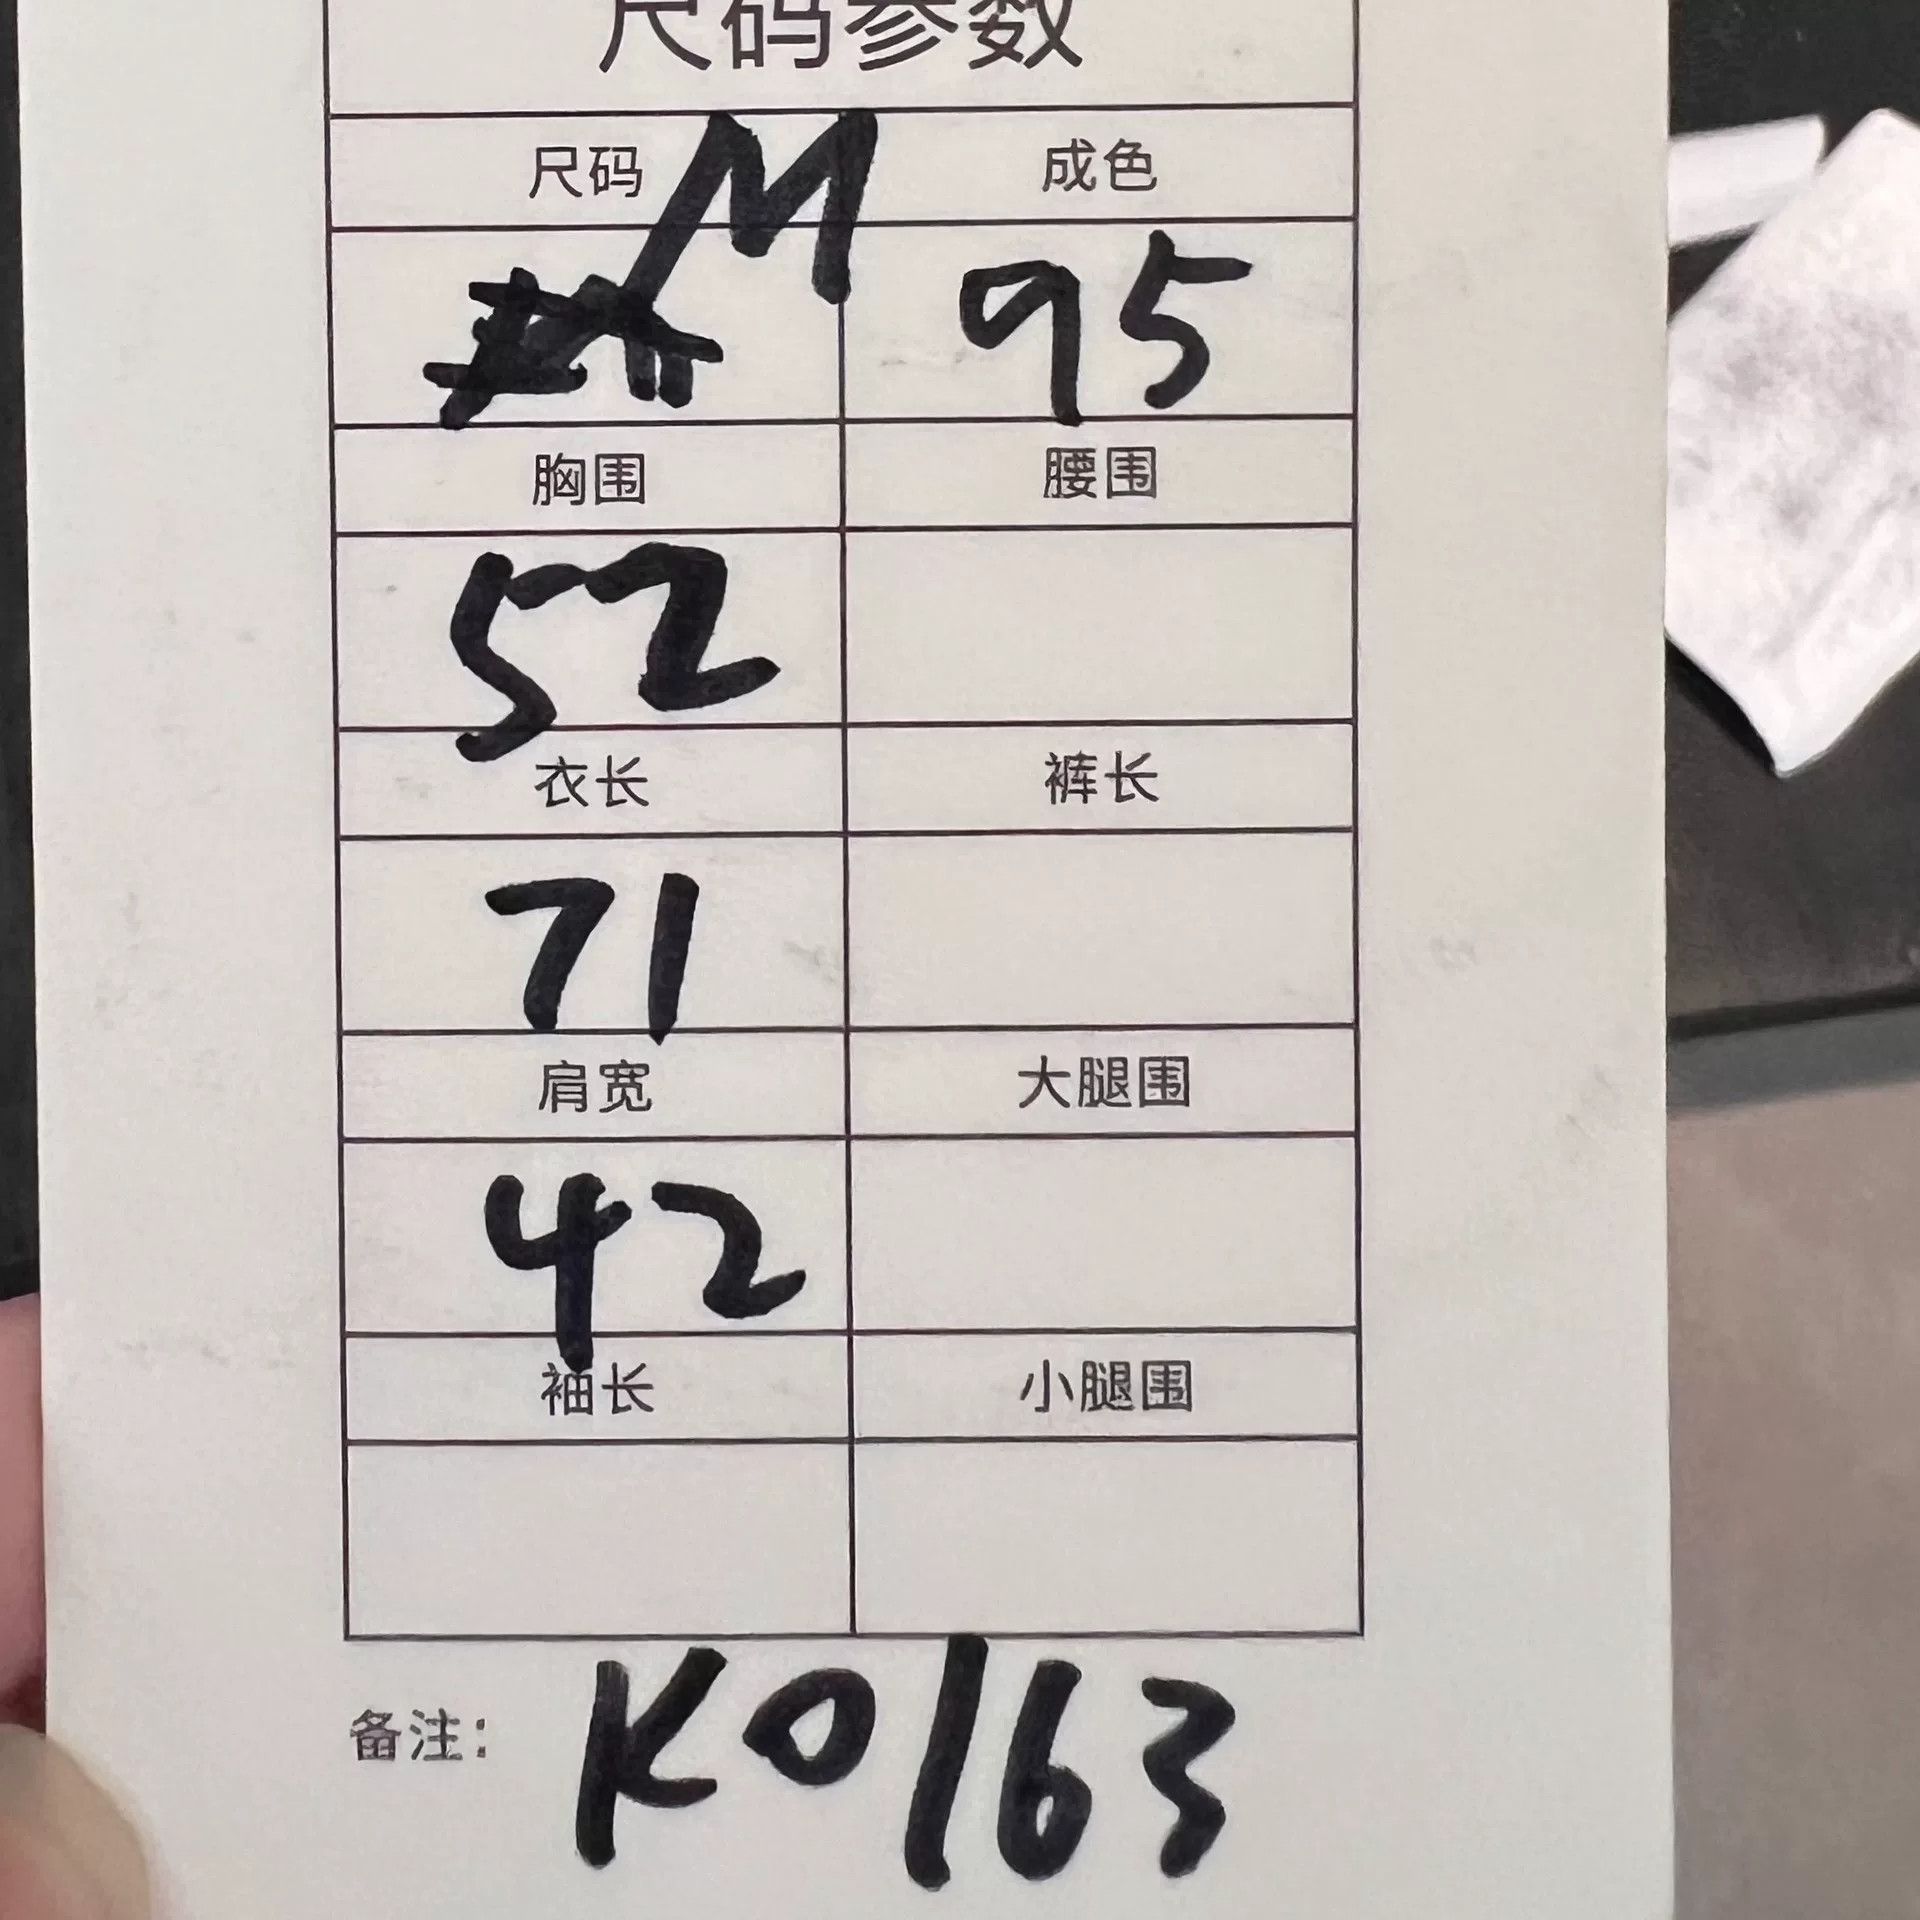 尺码参数
尺码 M 成色
95
胸围 腰围
52
衣长 裤长
71
肩宽 大腿围
42
袖长 小腿围
备注: K0163